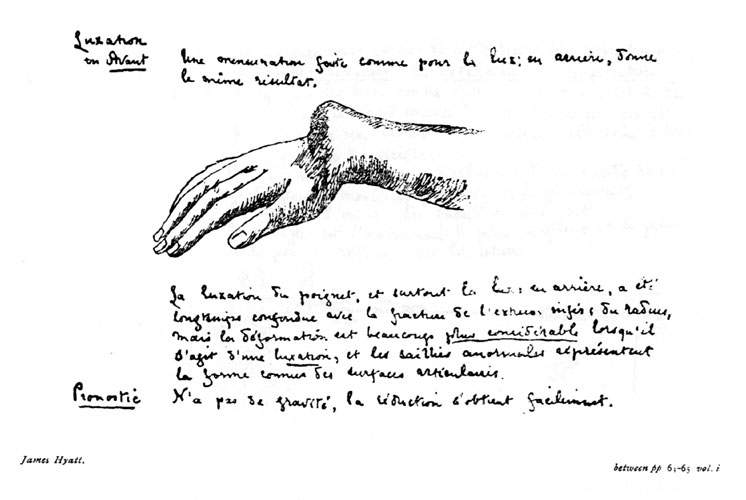 Luxation
en Avant
Une mensuration faite comme pour la lux: en arrière, donne
le même résultat.
La luxation du poignet, et surtout la lux: en arrière, a été
longtemps confondue avec la fracture de l'extrem. infér: du radius,
mais la déformation est beaucoup plus considérable lorsqu'il
s'agit d'une luxation, et les saillies anormales représentent
la forme connue des surfaces articulaires.
Pronostic N'a pas de gravité, la réduction s'obtient facilement.
James Hyatt.
between pp 6 -65 vol. i